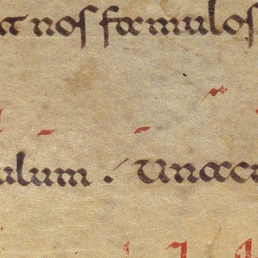 nos famulos
ulum . Unacu